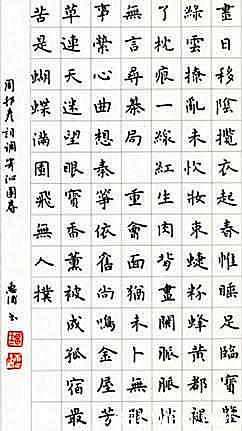 晝日移陰攬衣起春帷睡足臨寶鑑
綠雲撩亂未忺妝束蜨粉蜂黃都褪
了枕痕一線紅生肉背畫闌脈脈悄
無言尋棊局 重會面猶未卜無限
事縈心曲想秦箏依舊尚鳴金屋芳
草連天迷望眼寶香薰被成孤宿最
苦是蝴蝶滿園飛無人撲
周邦彥詞調寄沁園春